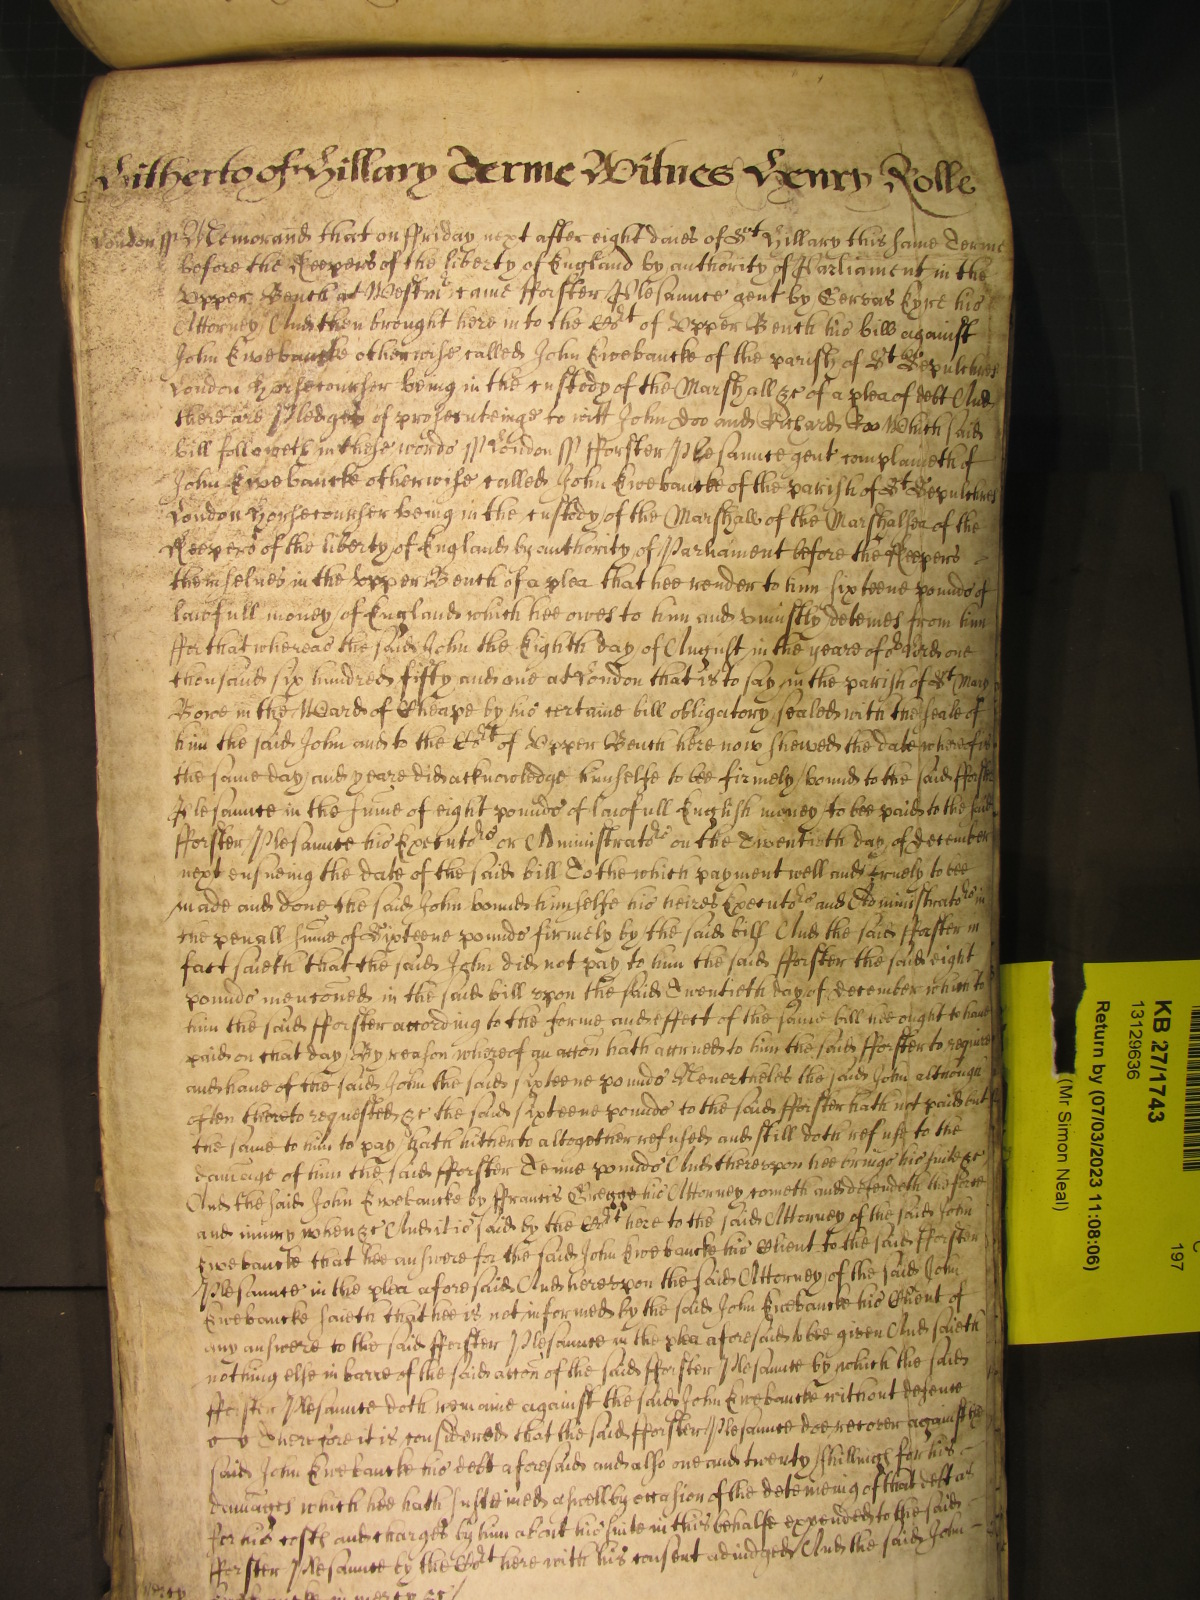 Hitherto of Hillary Terme Witnes Henry Rolle
London ss Memorand that on ffriday next after eight daies of St Hillary this same Terme
before the Keepers of the liberty of England by authority of Parliament in the
Upper Bench at Westmr came fforster Plesaunce gent by Gervas Eyre his
Attorney And then brought here in to the Cort of Upper Bench his bill against
John Ewebancke otherwise called John Ewebancke of the parish of St Sepulchres
London Horsecourser being in the custody of the Marshall &c of a plea of debt And
there are Pledges of prosecuteinge to witt John Doo and Richard Roo Which said
bill followeth in these words ss London ss fforster Plesaunce gent complaineth of
John Ewebancke otherwise called John Ewebancke of the parish of St Sepulchres
London Horsecourser being in the custody of the Marshall of the Marshalsea of the
Keepers of the liberty of England by authority of Parliament before the Keepers
themselves in the Upper Bench of a plea that hee render to him sixteene pounds of
lawfull money of England which hee owes to him and uniustly deteines from him
ffor that whereas the said John the Eighth day of August in the yeare of or Lord one
thousand six hundred fifty and one at London that is to say in the parish of St Mary
Bowe in the Ward of Cheape by his certaine bill obligatory sealed with the seale of
him the said John and to the Cort of Upper Bench here now shewed the date whereof is
the same day and yeare did acknowledge himselfe to bee firmely bound to the said fforster
Plesaunce in the sume of eight pounds of lawfull English money to bee paid to the said
fforster Plesaunce his Executors or Administrators on the Twentieth day of December
next ensueing the date of the said bill To the which payment well and truely to bee
made and done the said John bound himselfe his heires Executors and Administrators in
the penall sume of Sixteene pounds firmely by the said bill And the said fforster in
fact saieth that the said John did not pay to him the said fforster the said eight
pounds menconed in the said bill upon the said Twentieth day of December which to
him the said fforster according to the forme and effect of the same bill hee ought to have
paid on that day By reason whereof an accon hath accrued to him the said fforster to require
and have of the said John the said sixteene pounds Nevertheles the said John although
often thereto requested &c the said sixteene pounds to the said fforster hath not paid but
the same to him to pay hath hitherto altogether refused and still doth refuse to the
damage of him the said fforster Tenne pounds And thereupon hee brings his suite &c
And the said John Ewebancke by ffrancis Gregge his Attorney cometh and defendeth the force
and iniury when &c And it is said by the Cort here to the said Attorney of the said John
Ewebancke that hee answere for the said John Ewebancke his Client to the said fforster
Plesaunce in the plea aforesaid And hereupon the said Attorney of the said John
Ewebancke saieth that hee is not informed by the said John Ewebancke his Client of
any answere to the said fforster Plesaunce in the plea aforesaid to bee given And saieth
nothing else in barre of the said accon of the said fforster Plesaunce by which the said
fforster Plesaunce doth remaine against the said John Ewebancke without defence
Therefore it is considered that the said fforster Plesaunce doe recover against the
said John Ewebancke his debt aforesaid and also one and twenty shillings for his
damages which hee hath susteined aswell by occasion of the deteineing of that debt as
for his costs and charges by him about his suite in this behalfe expended to the said
fforster Plesaunce by the Cort here with his consent adiudged And the said John
Ewebancke in mercy &c
mercy
KB 27/1743
13129636
Return by (07/03/2023 11:08:06)
(Mr Simon Neal)
197